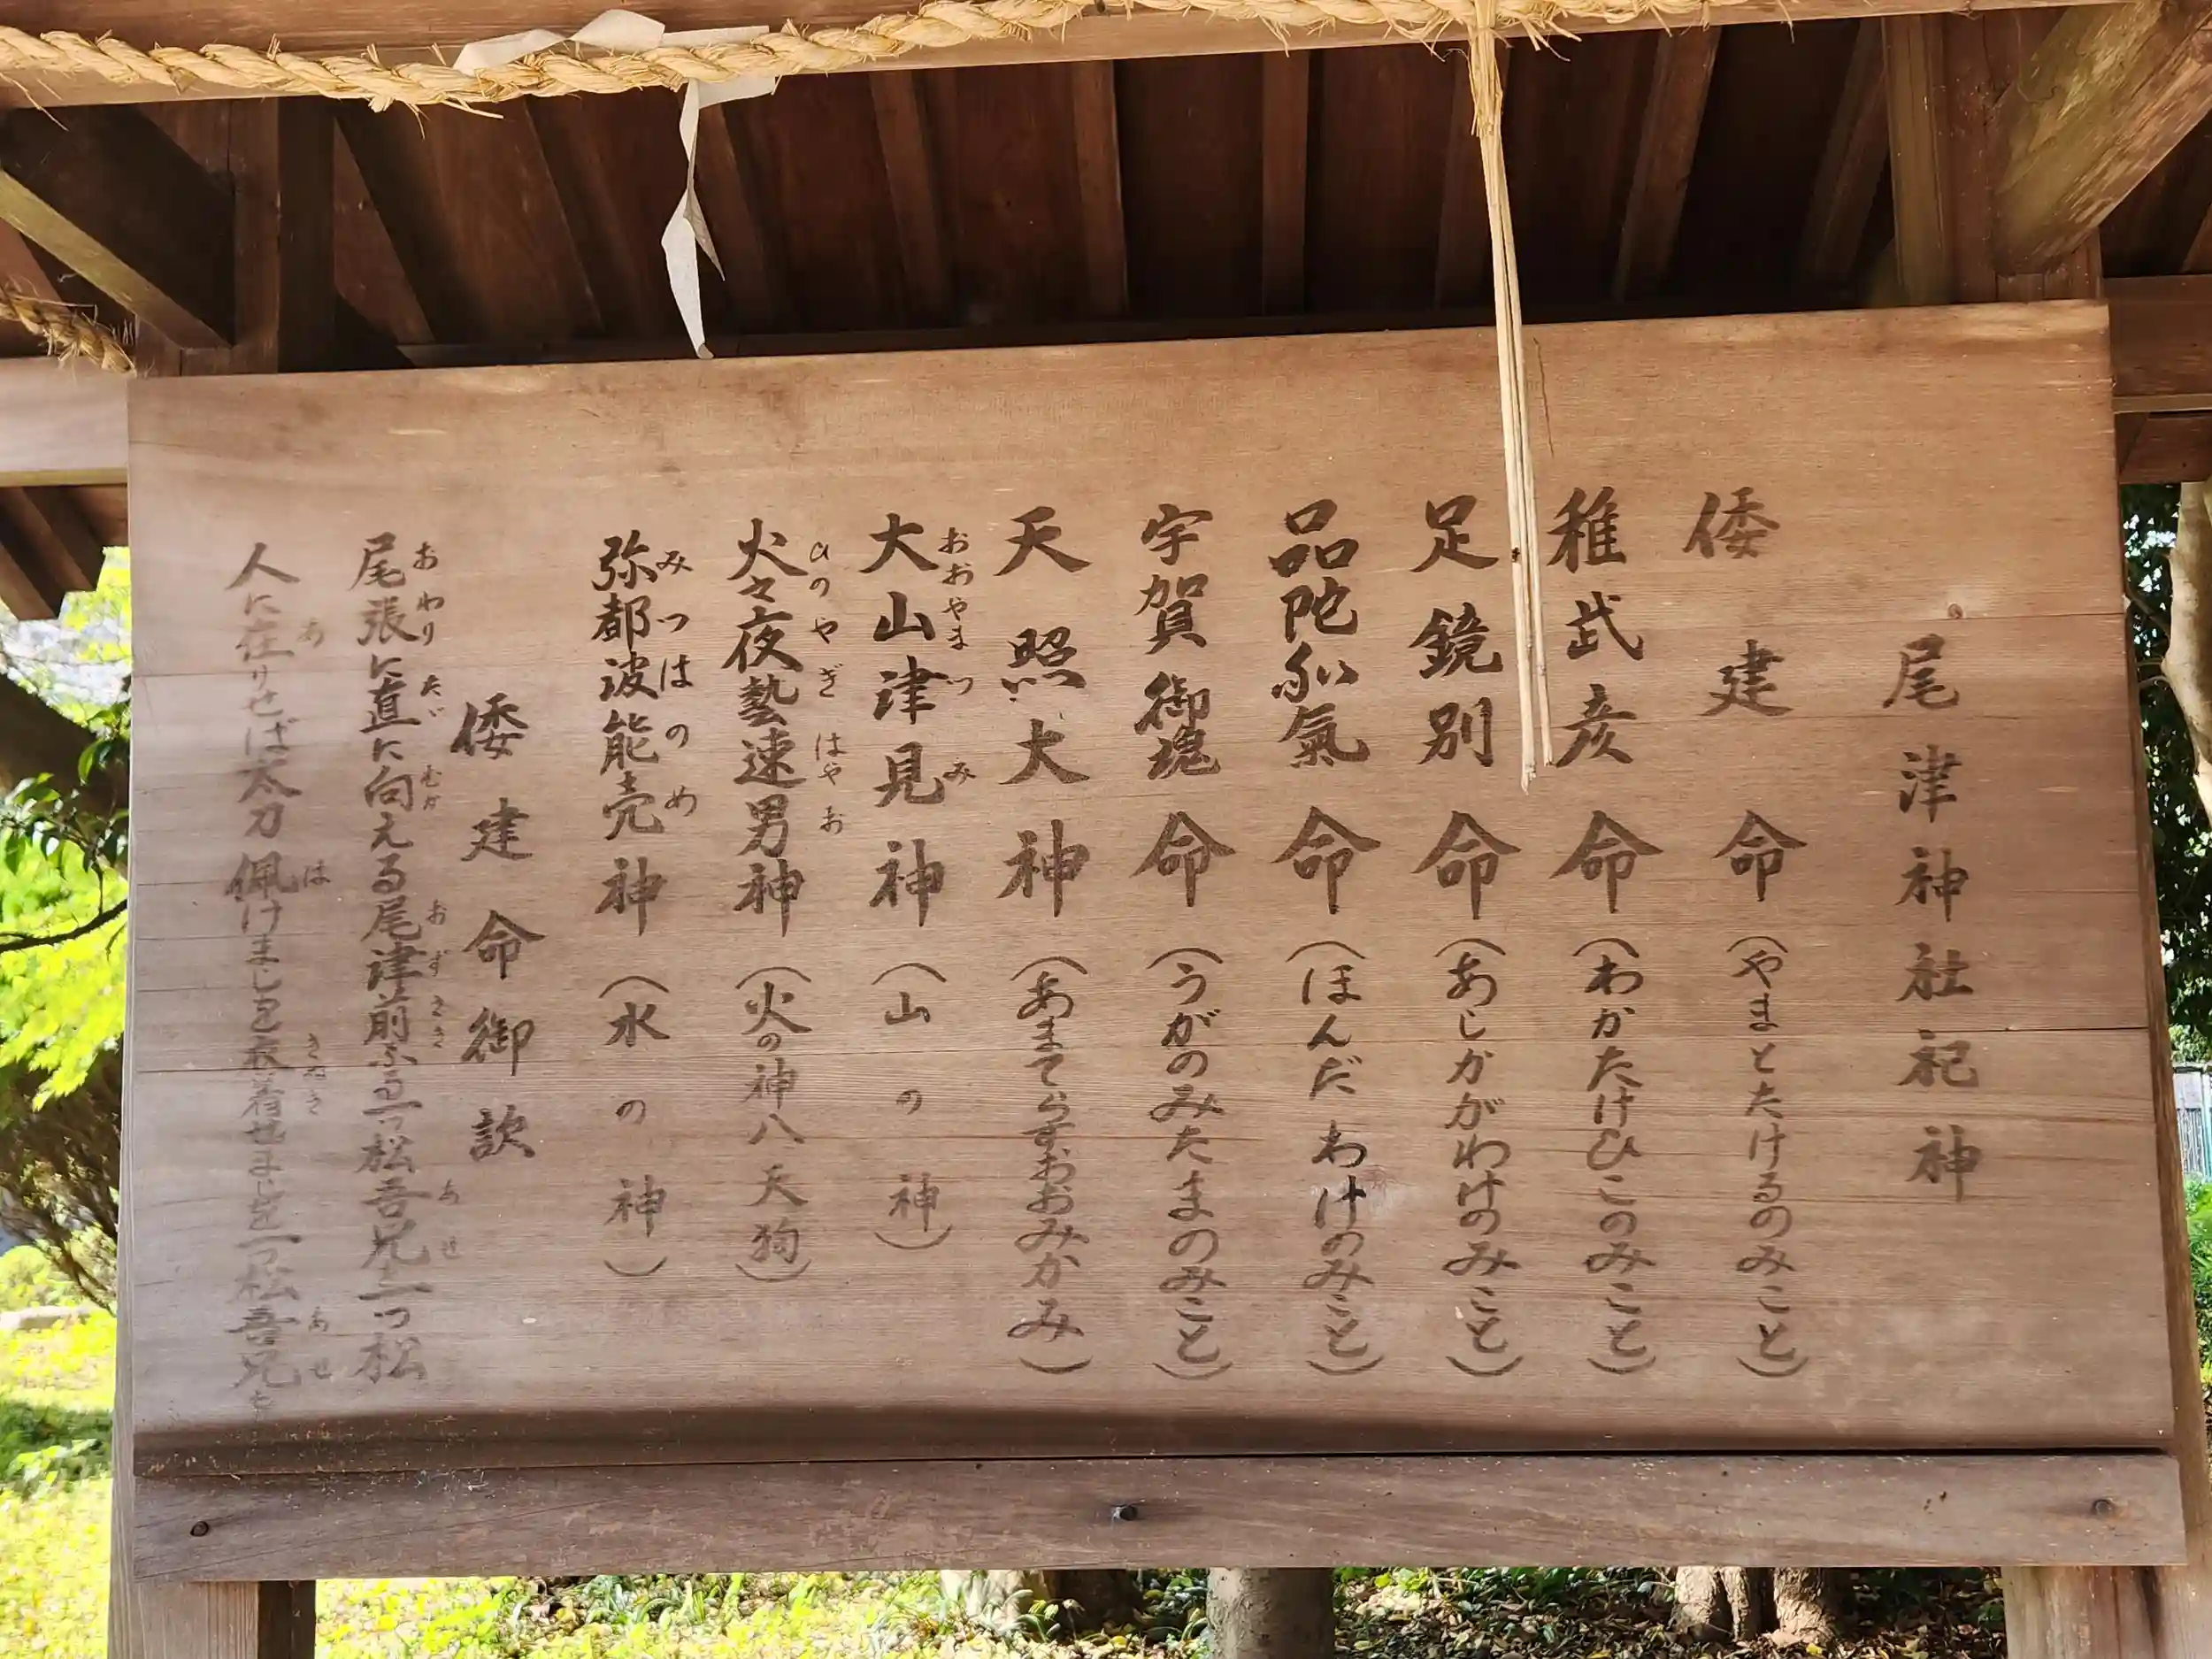 尾津神社祀神
倭建命(やまとたけるのみこと)
稚武彦命(わかたけひこのみこと)
足鏡別命(あしかがわけのみこと)
品陀和氣命(ほんだわけのみこと)
宇賀御魂命(うがのみたまのみこと)
天照大神(あまてらすおおみかみ)
大山津見神(山の神)
おおやまつみ
火々夜藝速男神(火の神八天狗)
ひのやぎはやお
弥都波能売神(水の神)
みつはのめ
倭建命御歌
尾張に直に向える尾津前なる一つ松吾兄一つ松
おわり ただ むか おずさき あせ
人に在りせば太刀佩けましを衣着せましを一つ松吾兄を
あ は きぬき あせ